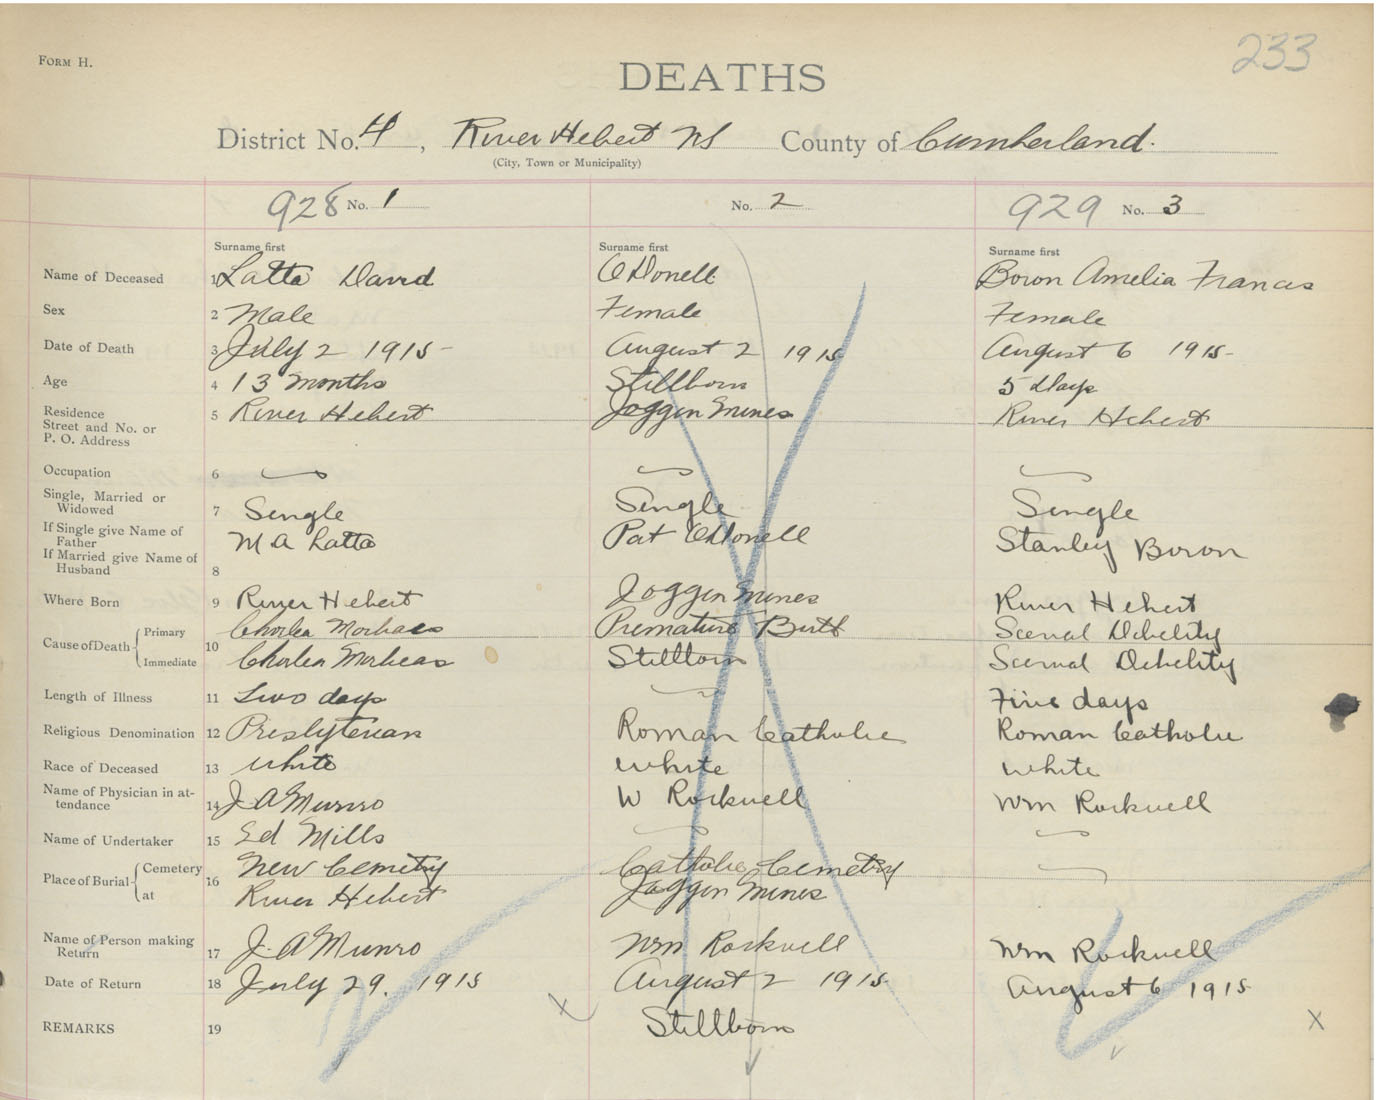 233
FORM H.
DEATHS
District No. 4, River Hebert NS County of Cumberland.
(City, Town or Municipality)
928 No. 1 No. 2 929 No. 3
Surname first Surname first Surname first
Name of Deceased 1 Latta David O'Donell Boron Amelia Francis
Sex 2 Male Female Female
Date of Death 3 July 2 1915 August 2 1915 August 6 1915
Age 4 13 months Stillborn 5 days
Residence
Street and No. or
P. O. Address 5 River Hebert Joggin Mines River Hebert
Occupation 6
Single, Married or
Widowed 7 Single Single Single
If Single give Name of
Father M A Latta Pat O'Donell Stanley Boron
If Married give Name of
Husband 8
Where Born 9 River Hebert Joggin Mines River Hebert
Cause of Death { Primary Cholea Premature Birth Debelity
Immediate 10 Cholea Stillborn Debelity
Length of Illness 11 Two days Five days
Religious Denomination 12 Presbyterian Roman Catholic Roman Catholic
Race of Deceased 13 White White White
Name of Physician in at-
tendance 14 J A Munro W Rockwell Wm Rockwell
Name of Undertaker 15 Ed Mills
Place of Burial { Cemetery New Cemetry Catholic Cemetry
at 16 River Hebert Joggin Mines
Name of Person making
Return 17 J. A Munro Wm Rockwell Wm Rockwell
Date of Return 18 July 29. 1915 August 2 1915 August 6 1915
REMARKS 19 Stillborn